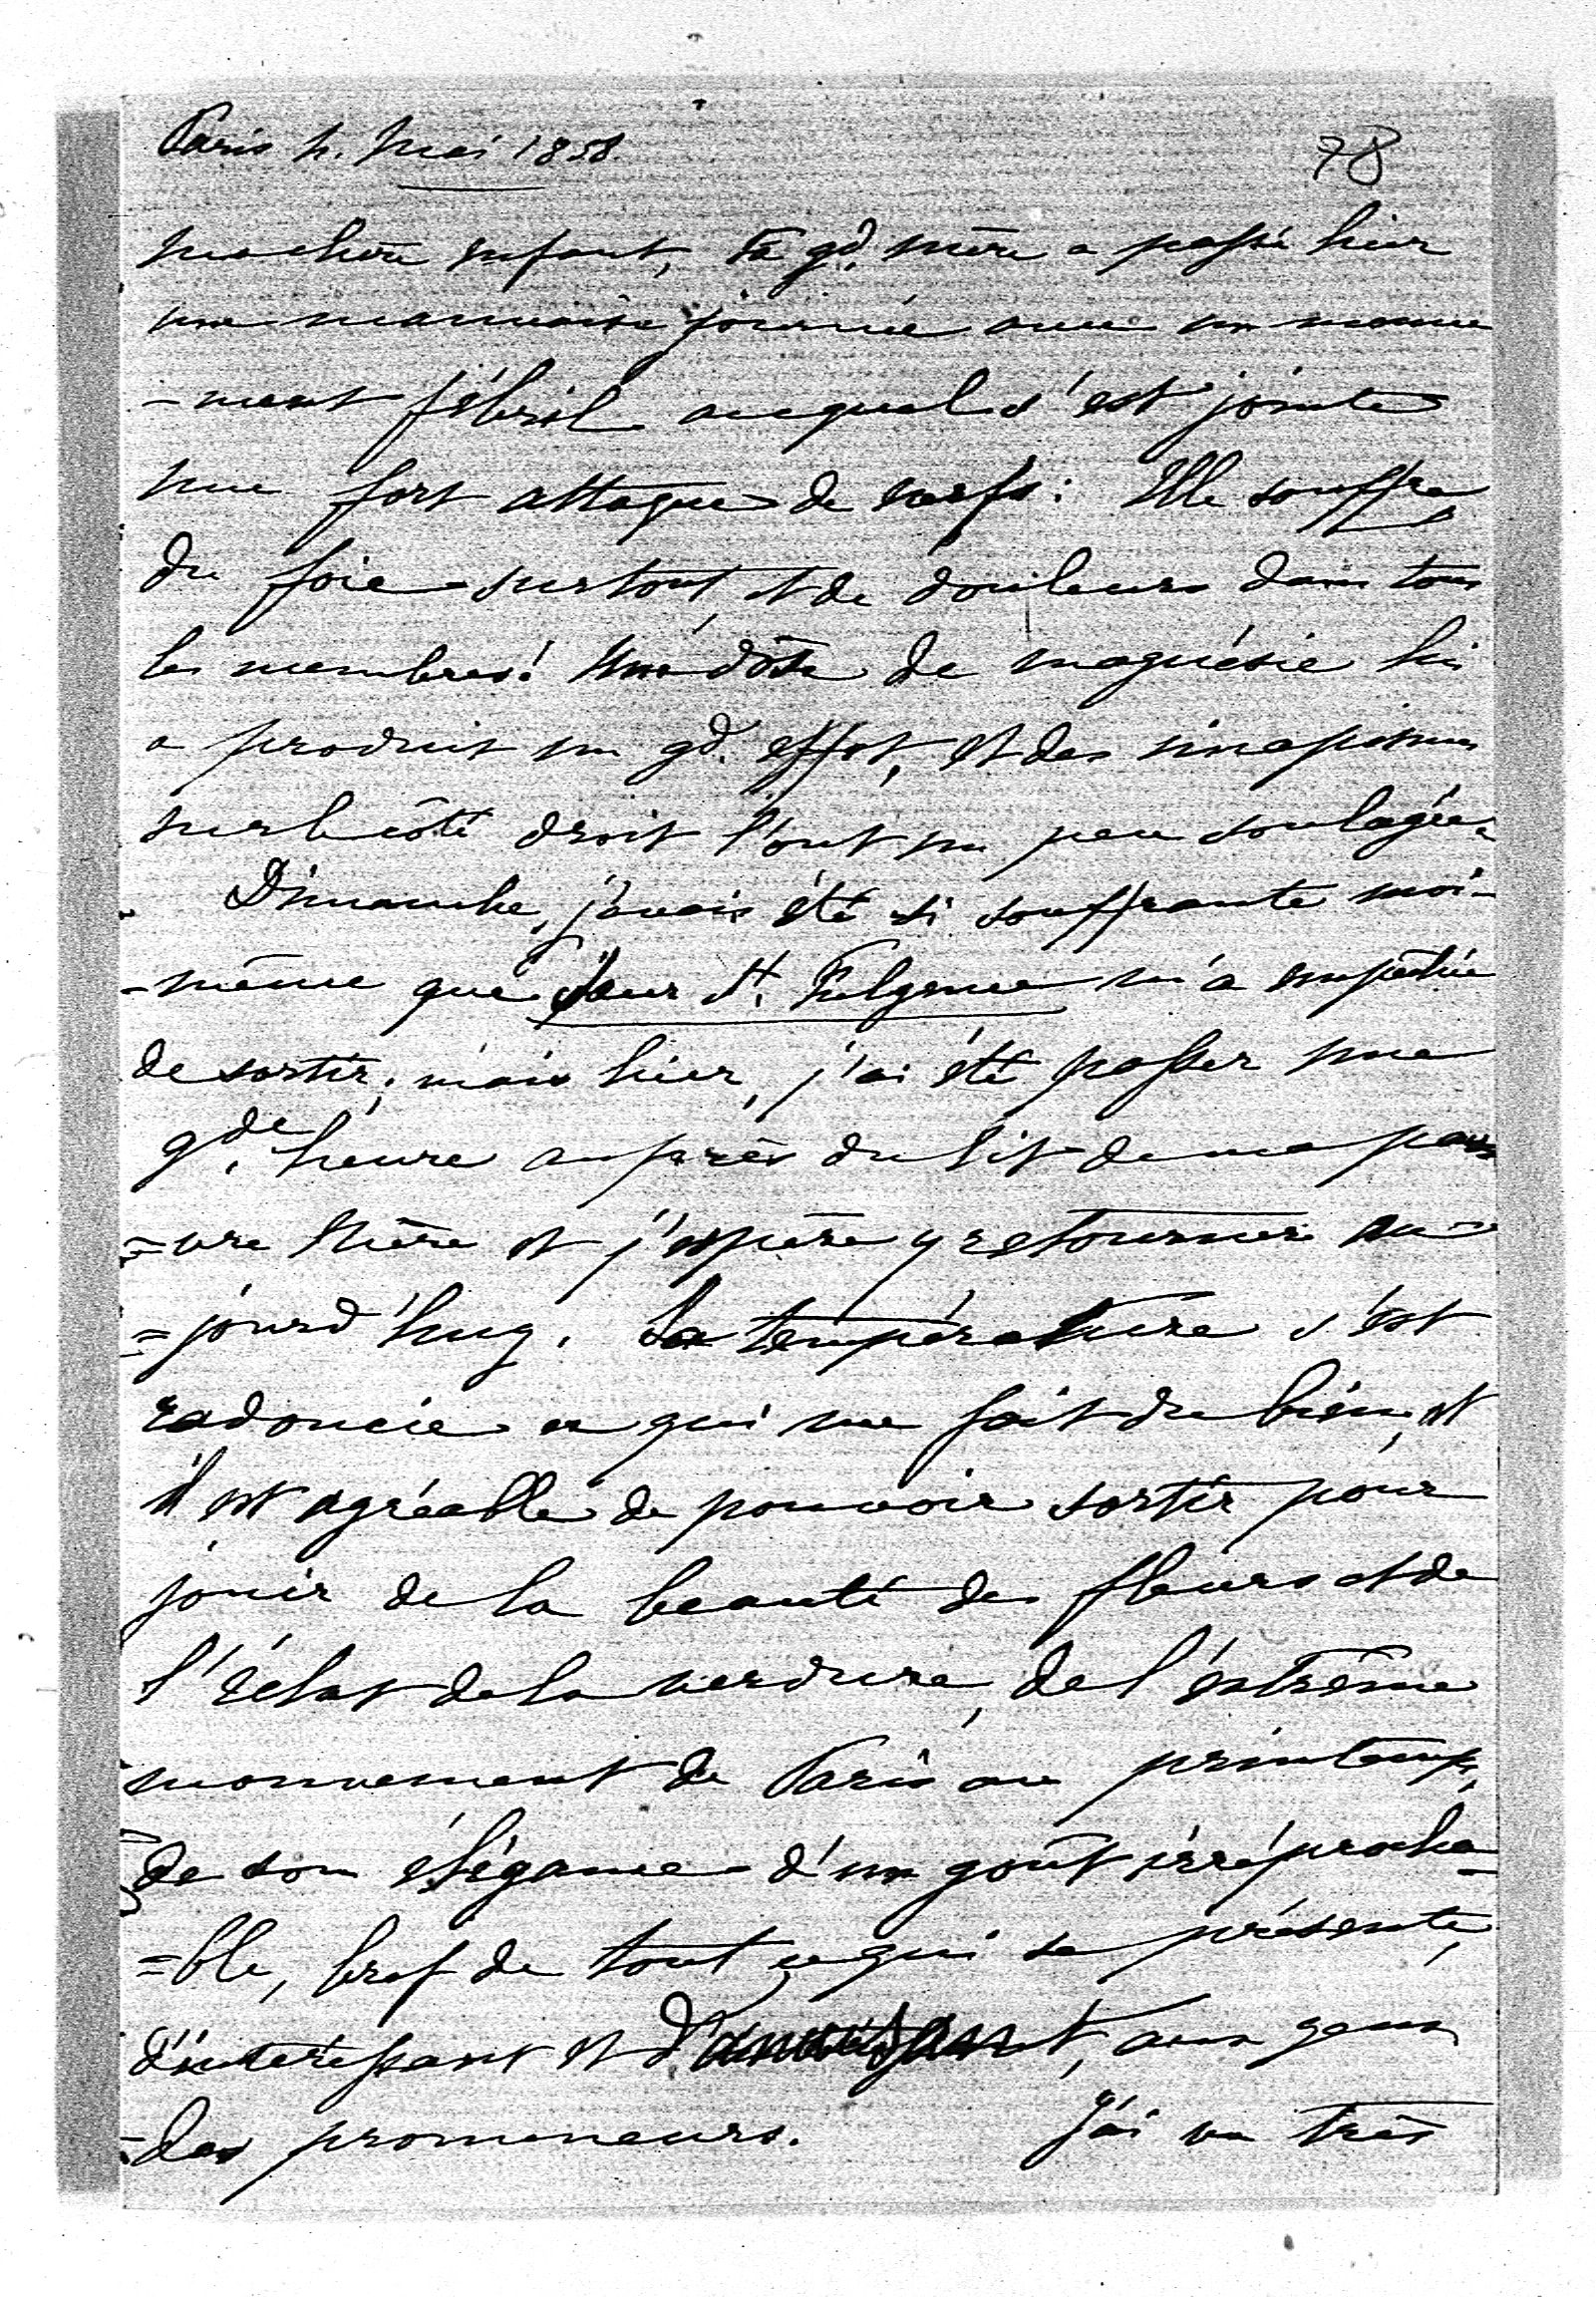 Paris 4. Mai 1858.
78
ma chère enfant, ta gd. mère a passé hier
une mauvaise journée avec un mouve
-ment fébril auquel s'est jointe
une fort attaque de nerfs: Elle souffre
du foie surtout, et de douleurs dans tous
les membres! Une dôse de magnésie lui
a produit un gd. effet, et des sinapismes
sur le côté droit l'ont un peu soulagée.
Dimanche, j'avais été si souffrante moi-
-même que Sœur St. Fulgence m'a empêchée
de sortir; mais hier, j'ai été passer une
gde. heure auprès du lit de ma pau
=vre Mère et j'espère y retourner au=
=jourd'huy. La température s'est
radoucie ce qui me fait du bien, et
il est agréable de pouvoir sortir pour
jouir de la beauté des fleurs et de
l'éclat de la verdure, de l'extrême
mouvement de Paris au printemps,
de son élégance d'un goût irréprocha=
=ble, bref de tout ce qui se présente,
d'intéressant et d'amusant, aux yeux
des promeneurs. J'ai vu très